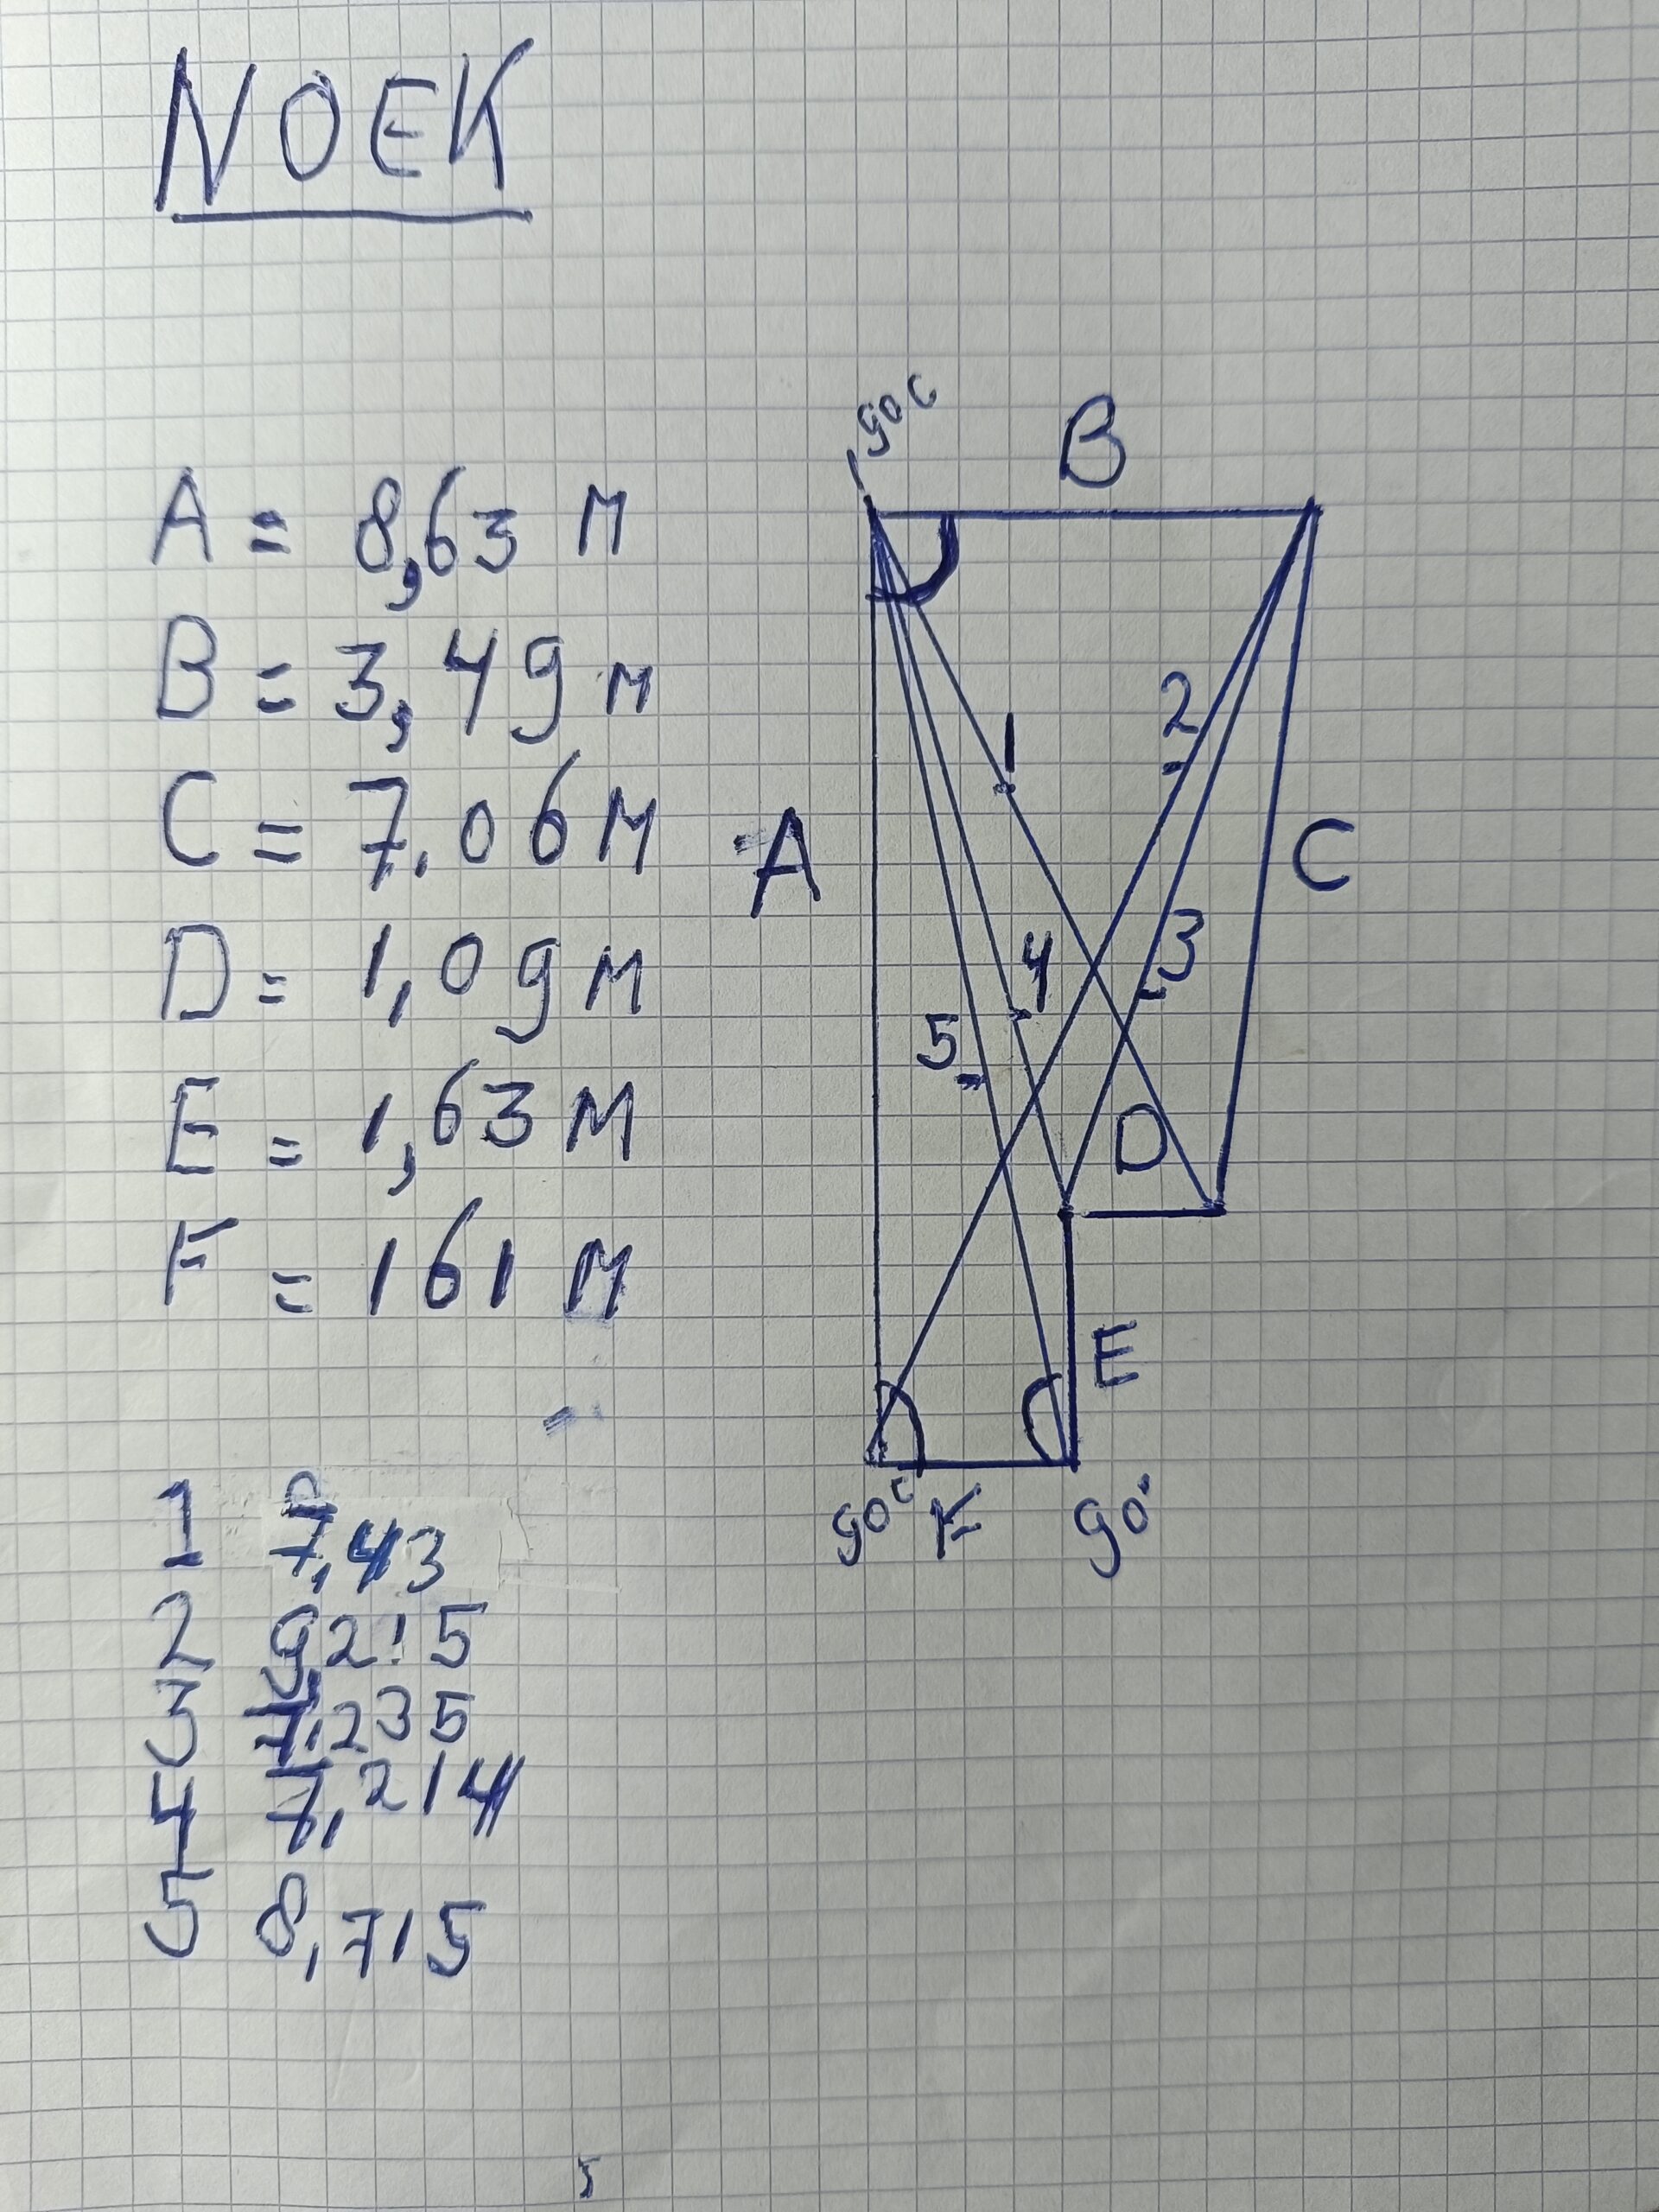 NOEK
A = 8,63 м
B = 3,49 м
C = 7.06 м
D = 1,09 м
E = 1,63 м
F = 161 м
1 7,43
2 9,215
3 7.235
4 7,214
5 8,715
90°
B
A
C
1
2
3
4
5
D
E
90°
F
90°
5